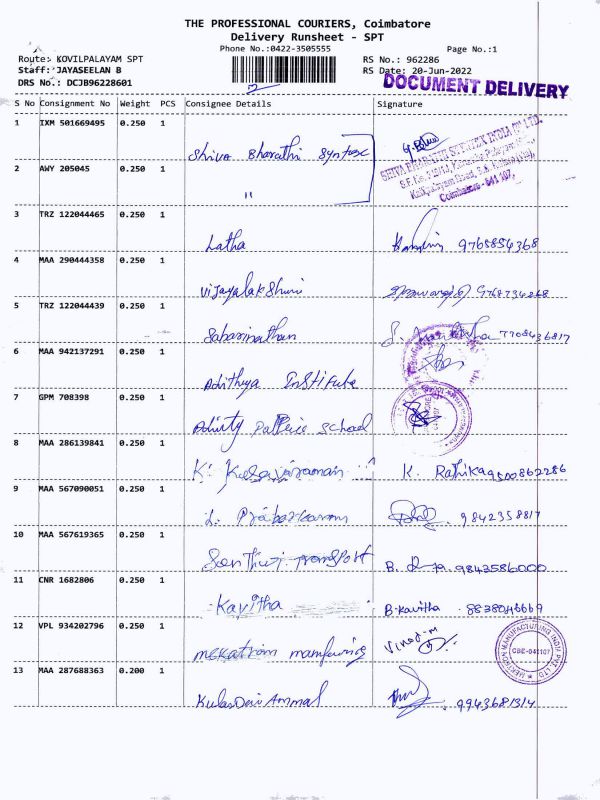 THE PROFESSIONAL COURIERS, Coimbatore
Delivery Runsheet - SPT
Phone No.:0422-3505555
Page No.:1
Route: KOVILPALAYAM SPT
RS No.: 962286
Staff: JAYASEELAN B
RS Date: 20-Jun-2022
DRS No.: DCJB96228601
DOCUMENT DELIVERY
S No Consignment No Weight PCS Consignee Details Signature
1 IXM 501669495 0.250 1 Shiva Bharathi
2 AWY 205045 0.250 1 "
Coimbatore - 641 107.
3 TRZ 122044465 0.250 1 Latha 9765854368
4 MAA 290444358 0.250 1 Vijayalakshmi
5 TRZ 122044439 0.250 1 Sabarinathan 7708436817
6 MAA 942137291 0.250 1 Adithya Institute
7 GPM 708398 0.250 1 School
8 MAA 286139841 0.250 1 K. K. Rathika 9500862286
9 MAA 567090051 0.250 1 9842358817
10 MAA 567619365 0.250 1 transport B. 9843586000
11 CNR 1682806 0.250 1 Kavitha B. Kavitha 8838046669
12 VPL 934202796 0.250 1 mekatrom Vinod-m
CBE-641107
13 MAA 287688363 0.200 1 KulanDai Ammal 9943681314